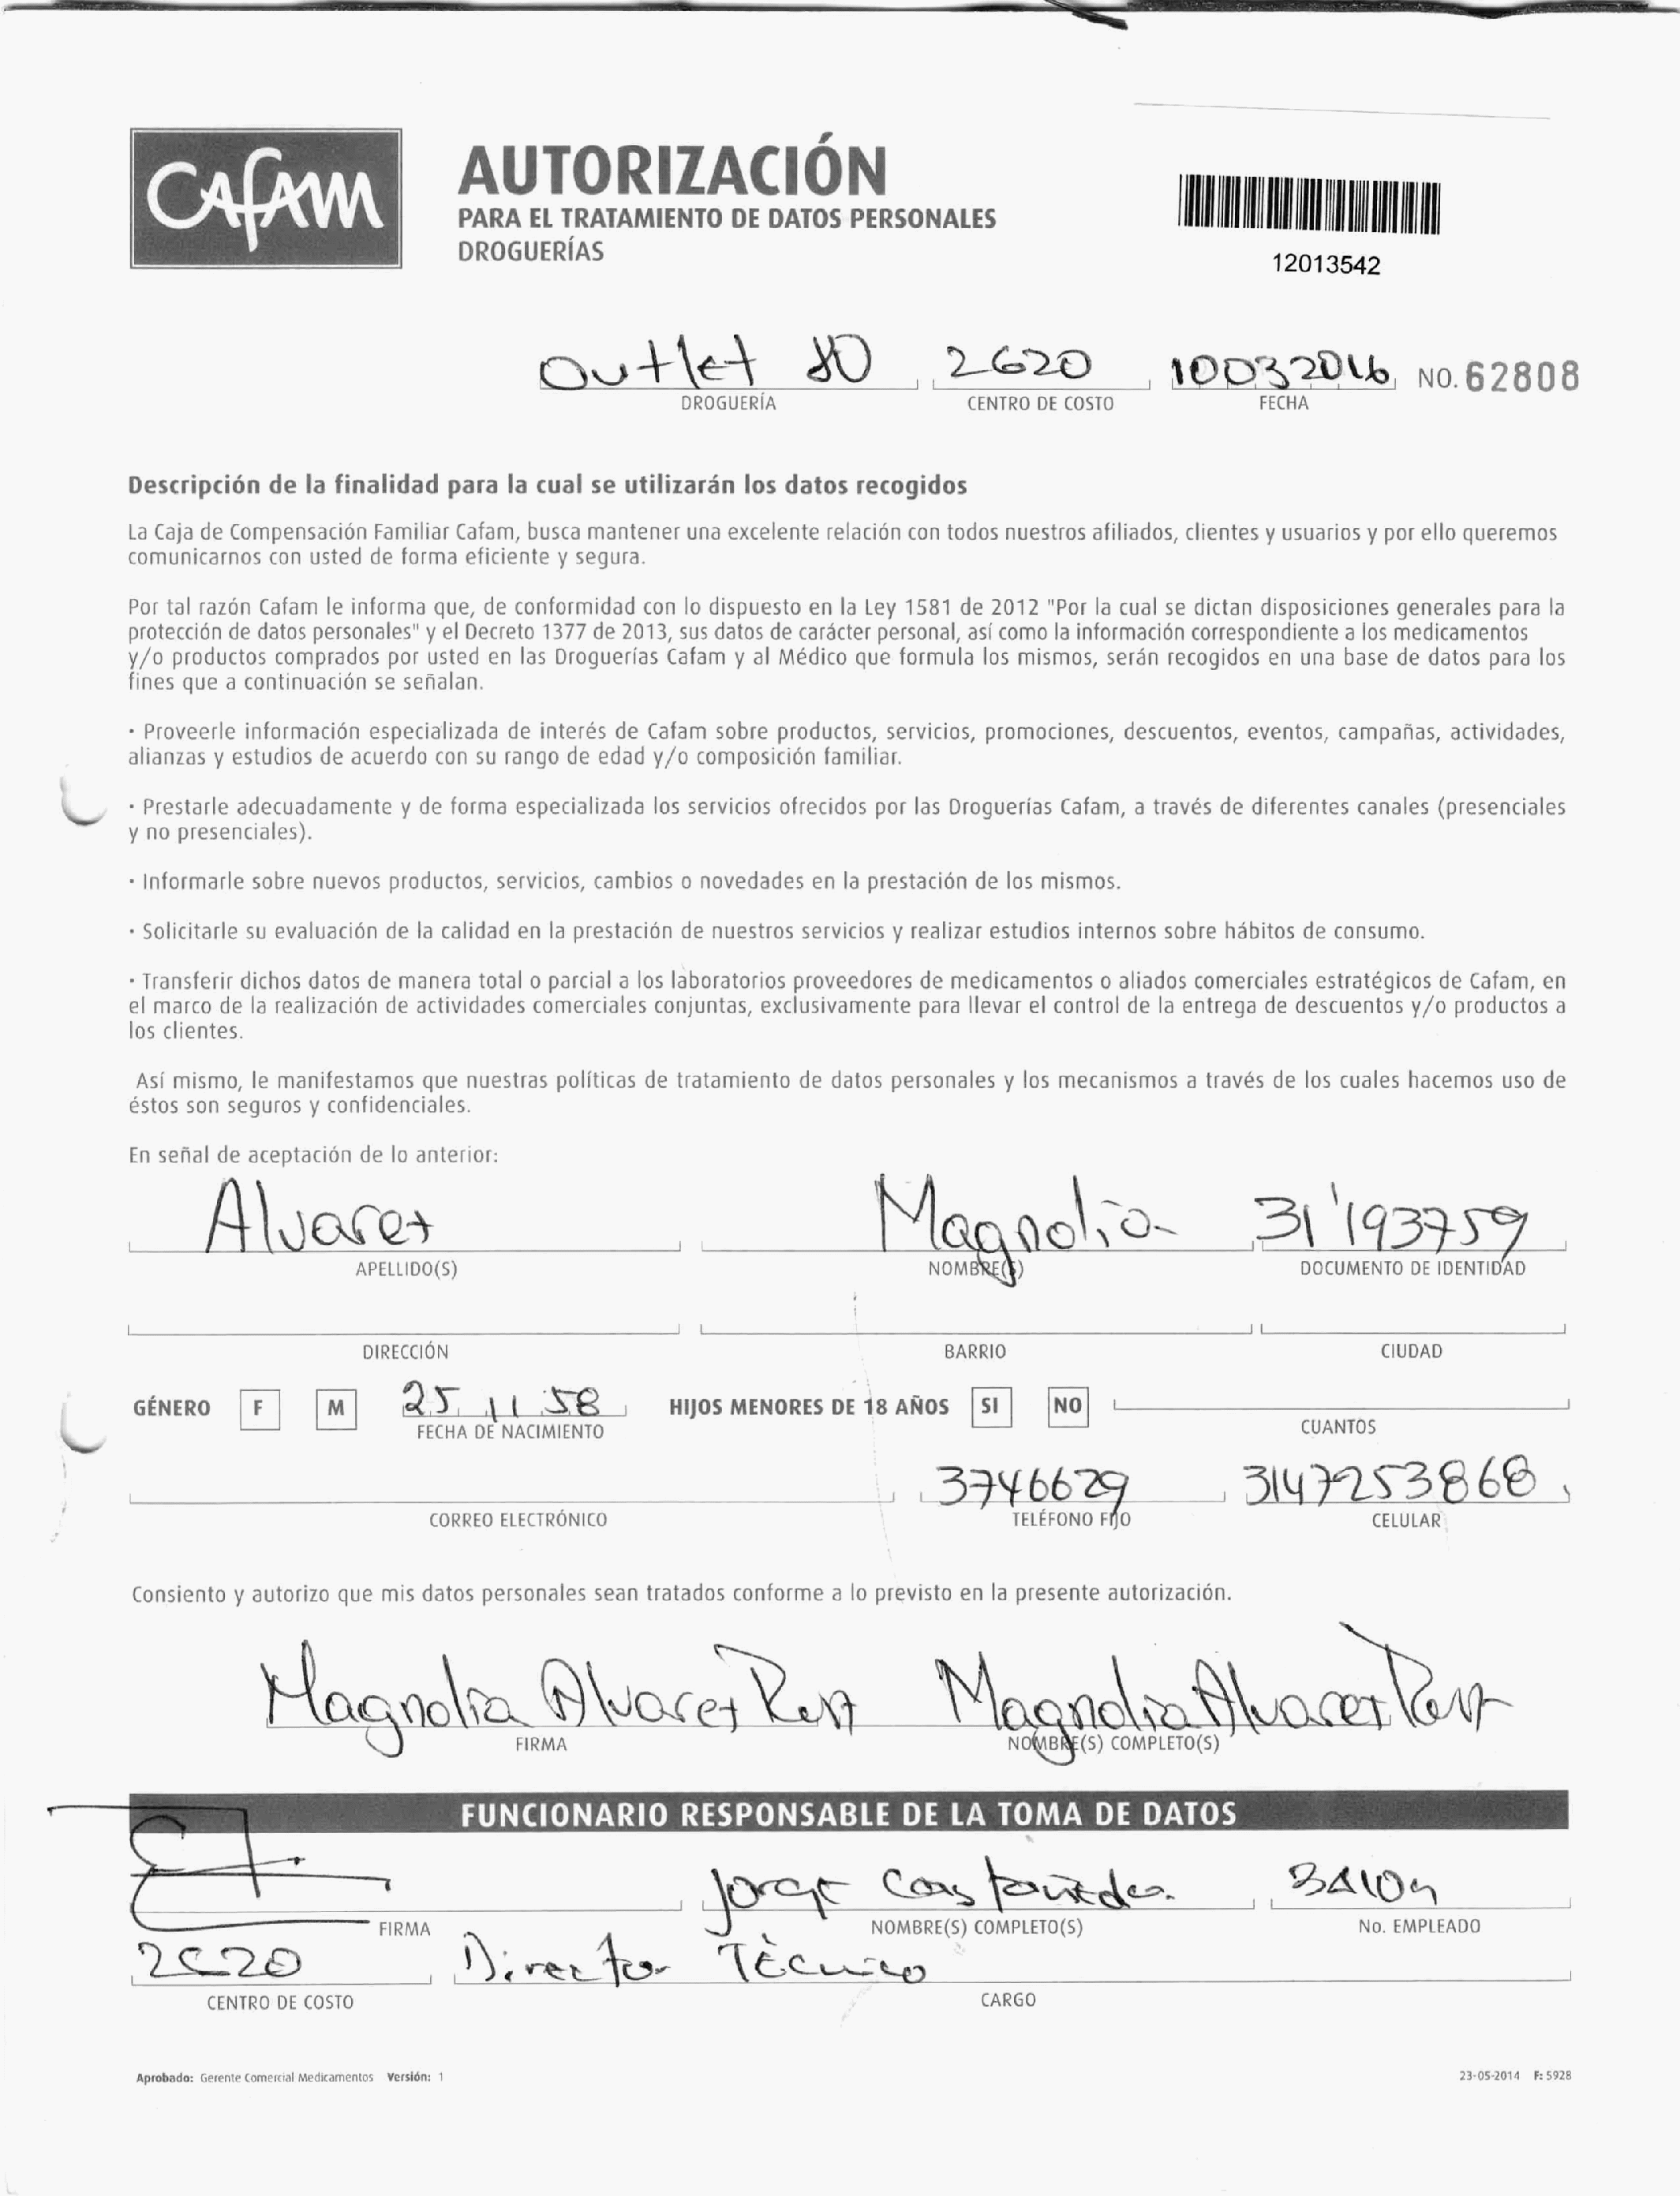 CAFAM
AUTORIZACIÓN
PARA EL TRATAMIENTO DE DATOS PERSONALES
DROGUERÍAS
12013542
Outlet 80 2620 10032016 NO. 62808
DROGUERÍA CENTRO DE COSTO FECHA
Descripción de la finalidad para la cual se utilizarán los datos recogidos
La Caja de Compensación Familiar Cafam, busca mantener una excelente relación con todos nuestros afiliados, clientes y usuarios y por ello queremos
comunicarnos con usted de forma eficiente y segura.
Por tal razón Cafam le informa que, de conformidad con lo dispuesto en la Ley 1581 de 2012 "Por la cual se dictan disposiciones generales para la
protección de datos personales" y el Decreto 1377 de 2013, sus datos de carácter personal, así como la información correspondiente a los medicamentos
y/o productos comprados por usted en las Droguerías Cafam y al Médico que formula los mismos, serán recogidos en una base de datos para los
fines que a continuación se señalan.
· Proveerle información especializada de interés de Cafam sobre productos, servicios, promociones, descuentos, eventos, campañas, actividades,
alianzas y estudios de acuerdo con su rango de edad y/o composición familiar.
· Prestarle adecuadamente y de forma especializada los servicios ofrecidos por las Droguerías Cafam, a través de diferentes canales (presenciales
y no presenciales).
· Informarle sobre nuevos productos, servicios, cambios o novedades en la prestación de los mismos.
· Solicitarle su evaluación de la calidad en la prestación de nuestros servicios y realizar estudios internos sobre hábitos de consumo.
· Transferir dichos datos de manera total o parcial a los laboratorios proveedores de medicamentos o aliados comerciales estratégicos de Cafam, en
el marco de la realización de actividades comerciales conjuntas, exclusivamente para llevar el control de la entrega de descuentos y/o productos a
los clientes.
Así mismo, le manifestamos que nuestras políticas de tratamiento de datos personales y los mecanismos a través de los cuales hacemos uso de
éstos son seguros y confidenciales.
En señal de aceptación de lo anterior:
Alvarez Magnolia 31'193759
APELLIDO(S) NOMBRE(S) DOCUMENTO DE IDENTIDAD
DIRECCIÓN BARRIO CIUDAD
GÉNERO F M 25 11 58 HIJOS MENORES DE 18 AÑOS SI NO
FECHA DE NACIMIENTO CUANTOS
3746629 3147253868
CORREO ELECTRÓNICO TELÉFONO FIJO CELULAR
Consiento y autorizo que mis datos personales sean tratados conforme a lo previsto en la presente autorización.
Magnolia Alvarez Magnolia Alvarez
FIRMA NOMBRE(S) COMPLETO(S)
FUNCIONARIO RESPONSABLE DE LA TOMA DE DATOS
Jorge Castañeda
FIRMA NOMBRE(S) COMPLETO(S) No. EMPLEADO
2620 Director Técnico
CENTRO DE COSTO CARGO
Aprobado: Gerente Comercial Medicamentos Versión: 1 23-05-2014 F: 5928